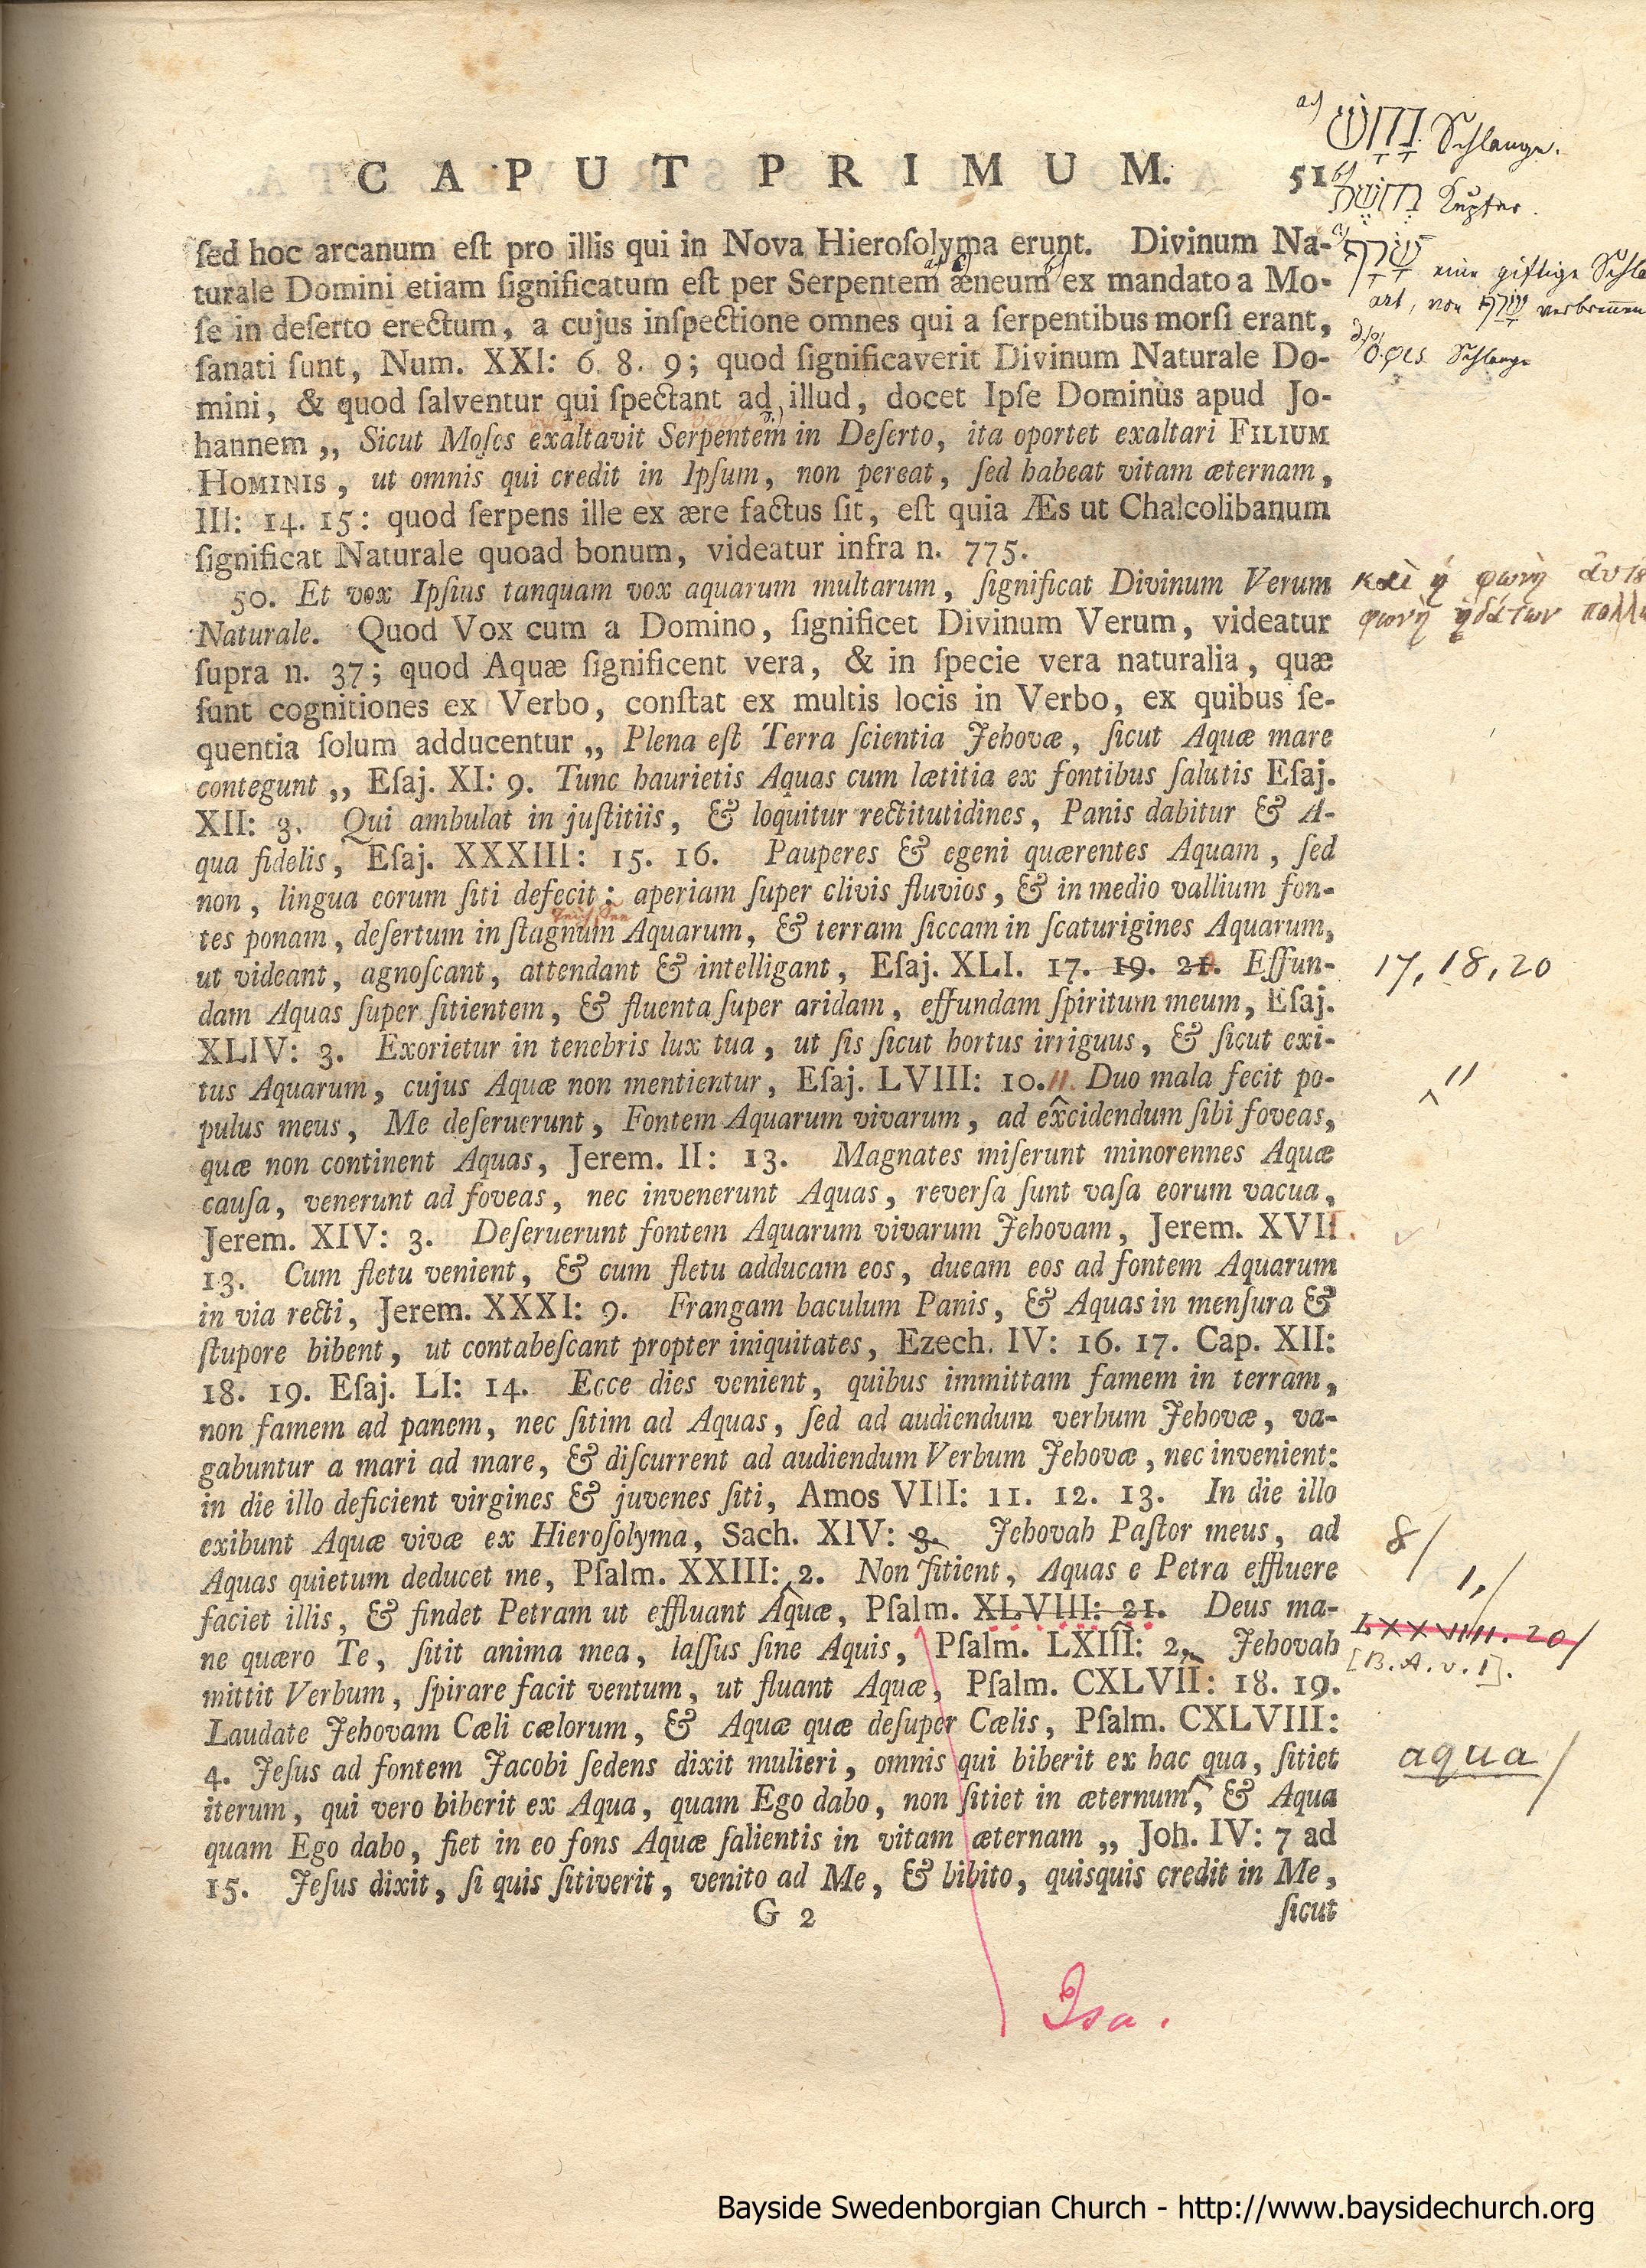 CAPUT PRIMUM. 51
a) נָחָשׁ Schlange.
b) נְחֹשֶׁת Kupfer.
c) שָׂרָף eine giftige Schla
art, von שָׂרַף verbrennen
d) ὄφις Schlange
ſed hoc arcanum eſt pro illis qui in Nova Hieroſolyma erunt. Divinum Na-
turale Domini etiam ſignificatum eſt per Serpentem æneum ex mandato a Mo-
ſe in deſerto erectum, a cujus inſpectione omnes qui a ſerpentibus morſi erant,
ſanati ſunt, Num. XXI: 6. 8. 9; quod ſignificaverit Divinum Naturale Do-
mini, & quod ſalventur qui ſpectant ad illud, docet Ipſe Dominus apud Jo-
hannem „ Sicut Moſes exaltavit Serpentem in Deſerto, ita oportet exaltari FILIUM
HOMINIS, ut omnis qui credit in Ipſum, non pereat, ſed habeat vitam æternam,
III: 14. 15: quod ſerpens ille ex ære factus ſit, eſt quia Æs ut Chalcolibanum
ſignificat Naturale quoad bonum, videatur infra n. 775.
50. Et vox Ipſius tanquam vox aquarum multarum, ſignificat Divinum Verum
καὶ ἡ φωνὴ ἀυτȣ
Naturale. Quod Vox cum a Domino, ſignificet Divinum Verum, videatur
φωνὴ ὑδάτων πολλω
ſupra n. 37; quod Aquæ ſignificent vera, & in ſpecie vera naturalia, quæ
ſunt cognitiones ex Verbo, conſtat ex multis locis in Verbo, ex quibus ſe-
quentia ſolum adducentur „ Plena eſt Terra ſcientia Jehovæ, ſicut Aquæ mare
contegunt „ Eſaj. XI: 9. Tunc haurietis Aquas cum lætitia ex fontibus ſalutis Eſaj.
XII: 3. Qui ambulat in juſtitiis, & loquitur rectitutidines, Panis dabitur & A-
qua fidelis, Eſaj. XXXIII: 15. 16. Pauperes & egeni quærentes Aquam, ſed
non, lingua eorum ſiti defecit; aperiam ſuper clivis fluvios, & in medio vallium fon-
tes ponam, deſertum in ſtagnum Aquarum, & terram ſiccam in ſcaturigines Aquarum,
ut videant, agnoſcant, attendant & intelligant, Eſaj. XLI. 17. 19. 21. Effun-
17, 18, 20
dam Aquas ſuper ſitientem, & fluenta ſuper aridam, effundam ſpiritum meum, Eſaj.
XLIV: 3. Exorietur in tenebris lux tua, ut ſis ſicut hortus irriguus, & ſicut exi-
tus Aquarum, cujus Aquæ non mentientur, Eſaj. LVIII: 10. 11. Duo mala fecit po-
11
pulus meus, Me deſeruerunt, Fontem Aquarum vivarum, ad excidendum ſibi foveas,
quæ non continent Aquas, Jerem. II: 13. Magnates miſerunt minorennes Aquæ
cauſa, venerunt ad foveas, nec invenerunt Aquas, reverſa ſunt vaſa eorum vacua,
Jerem. XIV: 3. Deſeruerunt fontem Aquarum vivarum Jehovam, Jerem. XVII
13. Cum fletu venient, & cum fletu adducam eos, ducam eos ad fontem Aquarum
in via recti, Jerem. XXXI: 9. Frangam baculum Panis, & Aquas in menſura &
ſtupore bibent, ut contabeſcant propter iniquitates, Ezech. IV: 16. 17. Cap. XII:
18. 19. Eſaj. LI: 14. Ecce dies venient, quibus immittam famem in terram,
non famem ad panem, nec ſitim ad Aquas, ſed ad audiendum verbum Jehovæ, va-
gabuntur a mari ad mare, & diſcurrent ad audiendum Verbum Jehovæ, nec invenient:
in die illo deficient virgines & juvenes ſiti, Amos VIII: 11. 12. 13. In die illo
exibunt Aquæ vivæ ex Hieroſolyma, Sach. XIV: 9. Jehovah Paſtor meus, ad
8/
Aquas quietum deducet me, Pſalm. XXIII: 2. Non ſitient, Aquas e Petra effluere
1,/
faciet illis, & findet Petram ut effluant Aquæ, Pſalm. XLVIII: 21. Deus ma-
LXXVIII. 20/
ne quæro Te, ſitit anima mea, laſſus ſine Aquis, Pſalm. LXIII: 2, Jehovah
[B.A.v.1].
mittit Verbum, ſpirare facit ventum, ut fluant Aquæ, Pſalm. CXLVII: 18. 19.
Laudate Jehovam Cæli cælorum, & Aquæ quæ deſuper Cælis, Pſalm. CXLVIII:
4. Jeſus ad fontem Jacobi ſedens dixit mulieri, omnis qui biberit ex hac qua, ſitiet
aqua/
iterum, qui vero biberit ex Aqua, quam Ego dabo, non ſitiet in æternum, & Aqua
quam Ego dabo, fiet in eo fons Aquæ ſalientis in vitam æternam „ Joh. IV: 7 ad
15. Jeſus dixit, ſi quis ſitiverit, venito ad Me, & bibito, quisquis credit in Me,
G 2 ſicut
Isa.
Bayside Swedenborgian Church - http://www.baysidechurch.org